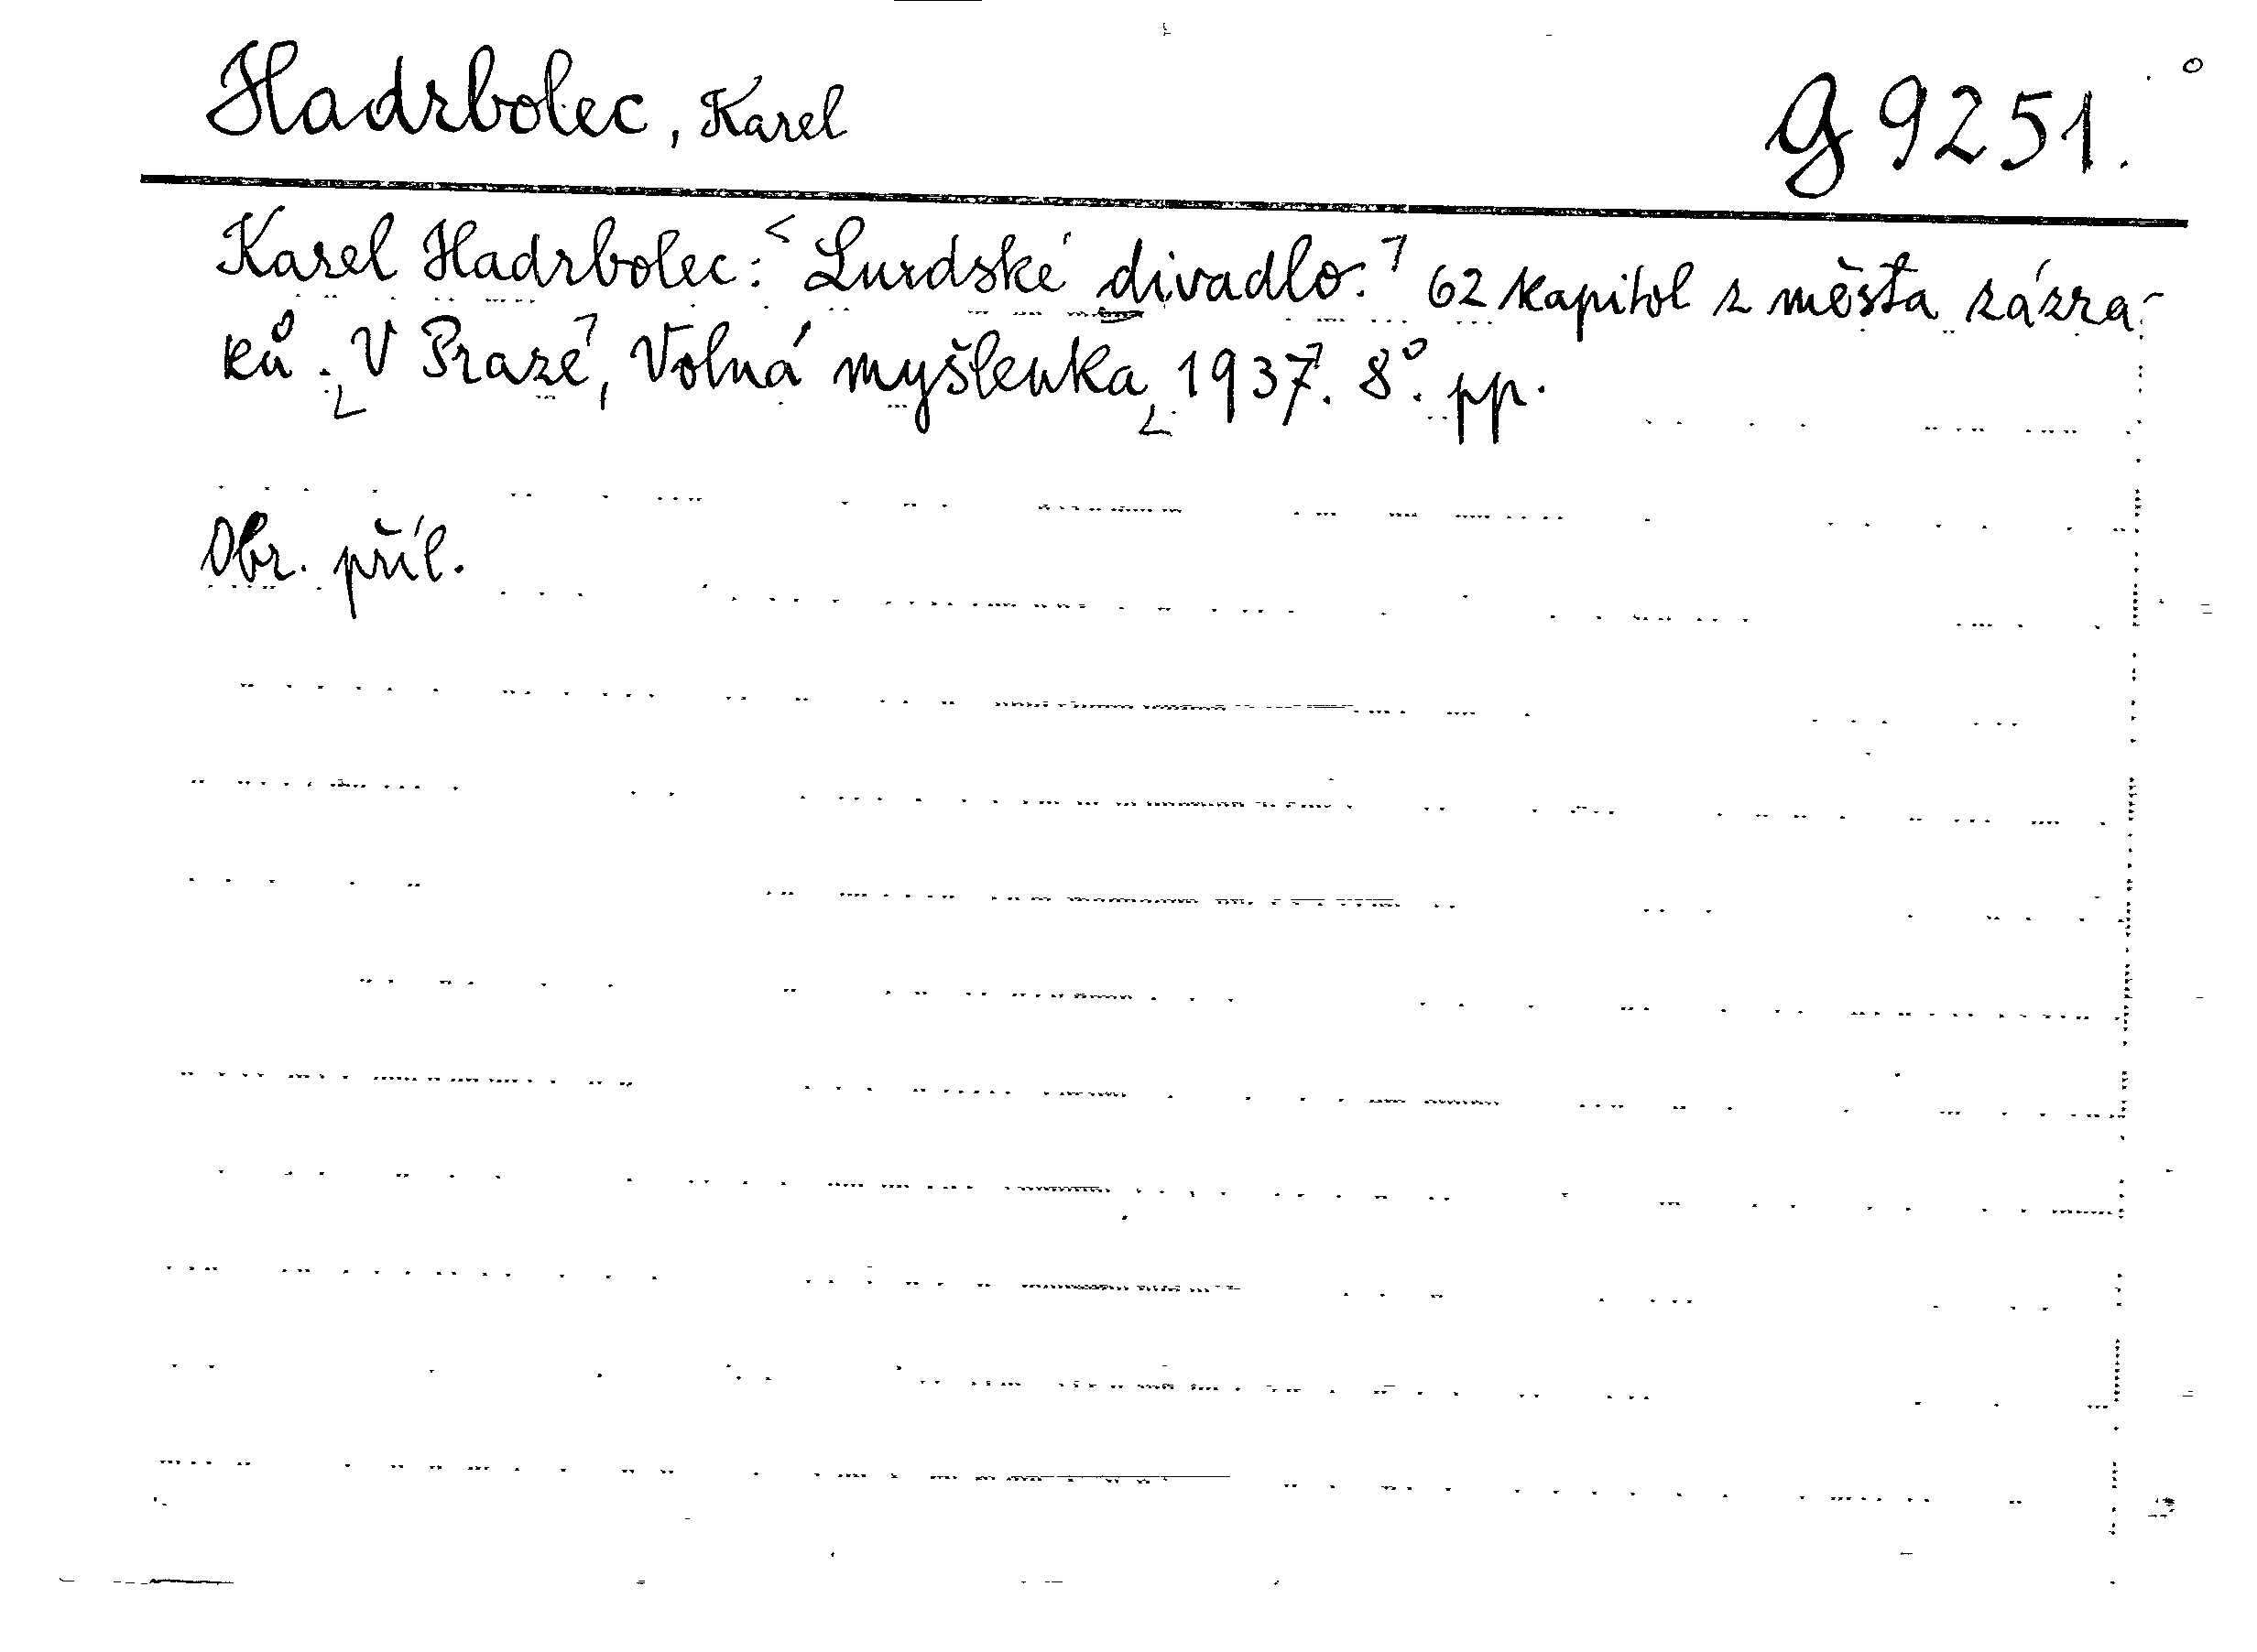 Hadrbolec, Karel G 9251.
Karel Hadrbolec: Lurdské divadlo. 62 kapitol z města zázra-
ků. V Praze, Volná myšlenka, 1937. 8°. pp.
Obr. příl.